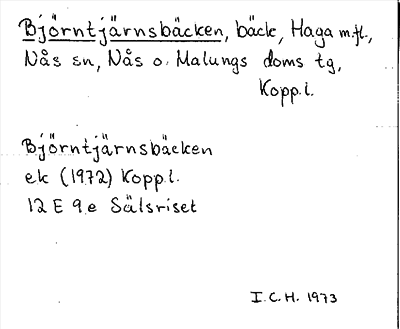 Björntjärnsbäcken, bäck, Haga m.fl.,
Nås sn, Nås o. Malungs doms tg,
Kopp.l.
Björntjärnsbäcken
ek (1972) Kopp.l.
12 E 9e Sälsriset
I.C.H. 1973